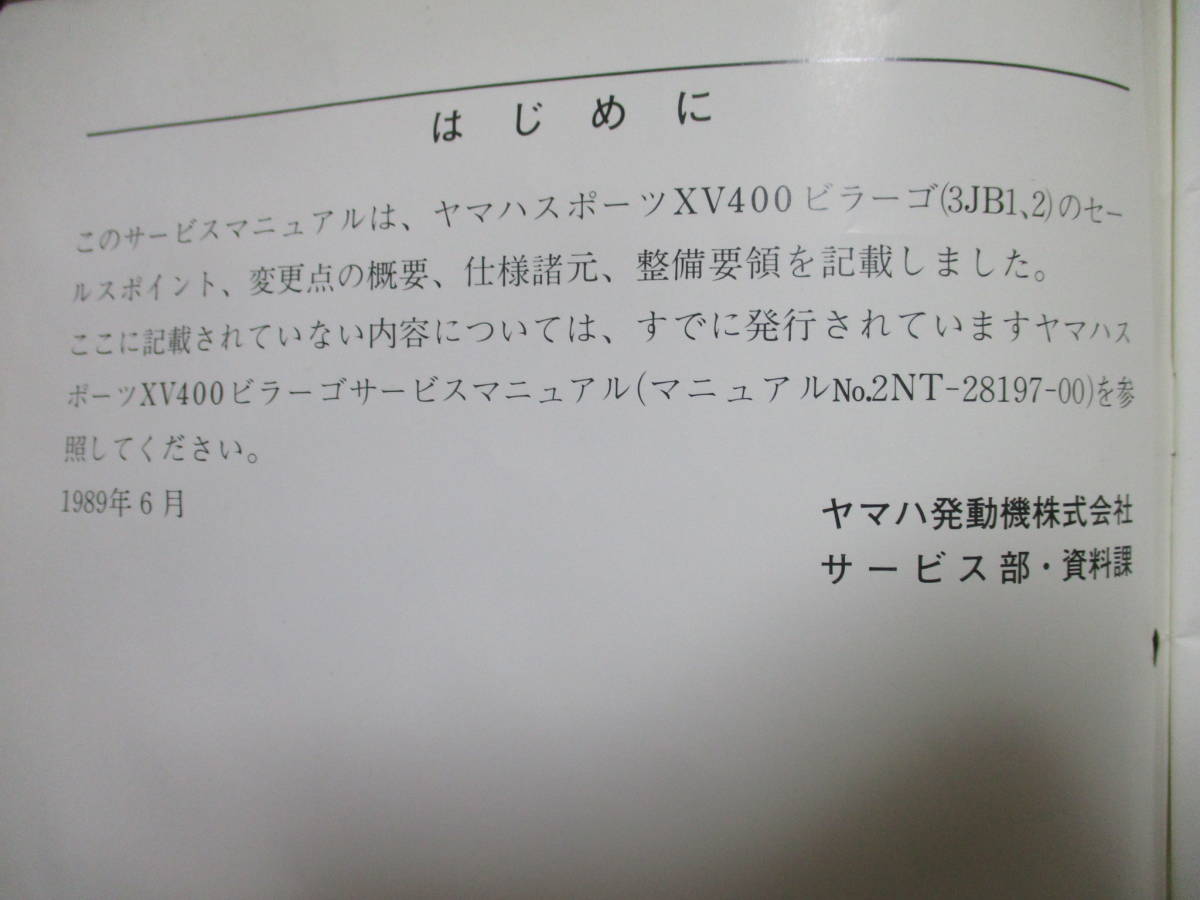 はじめに
このサービスマニュアルは、ヤマハスポーツXV400ビラーゴ(3JB1､2)のセー
ルスポイント、変更点の概要、仕様諸元、整備要領を記載しました。
ここに記載されていない内容については、すでに発行されていますヤマハス
ポーツXV400ビラーゴサービスマニュアル(マニュアルNo.2NT-28197-00)を参
照してください。
1989年6月
ヤマハ発動機株式会社
サービス部・資料課